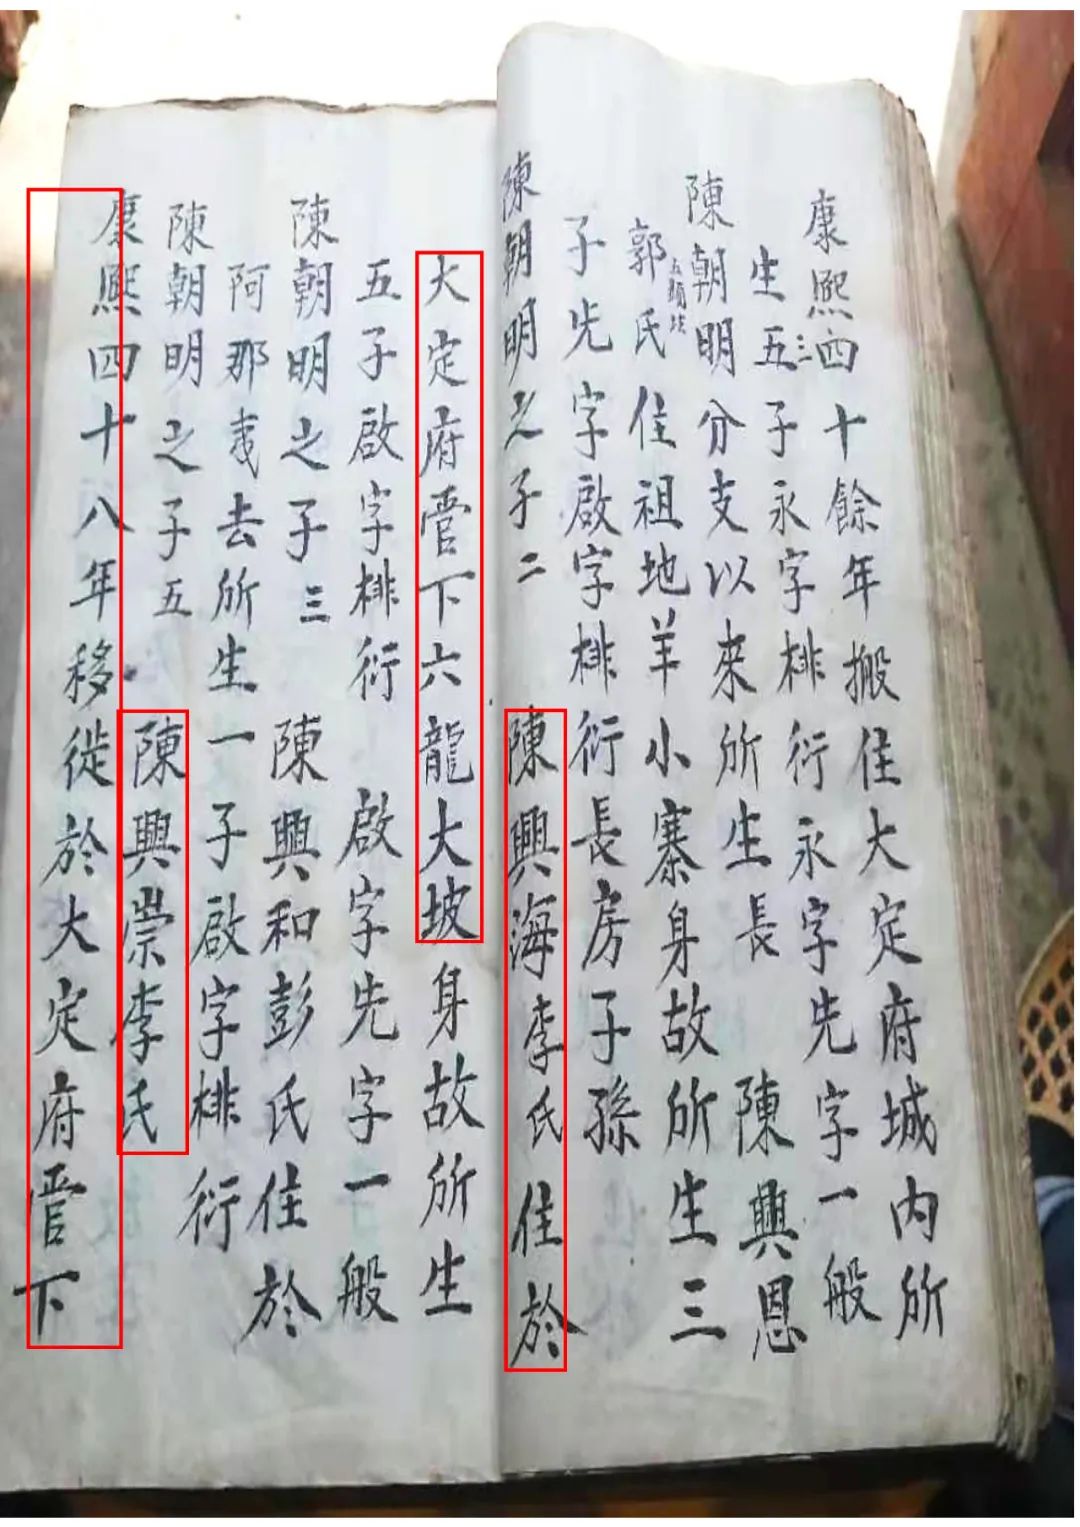 康熙四十餘年搬住大定府城内所
生五子永字排衍永字先字一般
陳朝明分支以來所生長 陳興恩
郭氏住祖地羊小寨身故所生三
子先字啟字排衍長房子孫
陳朝明之子二 陳興海李氏住於
大定府管下六龍大坡身故所生
五子啟字排衍 啟字先字一般
陳朝明之子三 陳興和彭氏住於
阿那戛去所生一子啟字排衍
陳朝明之子五 陳興崇李氏
康熙四十八年移徙於大定府管下